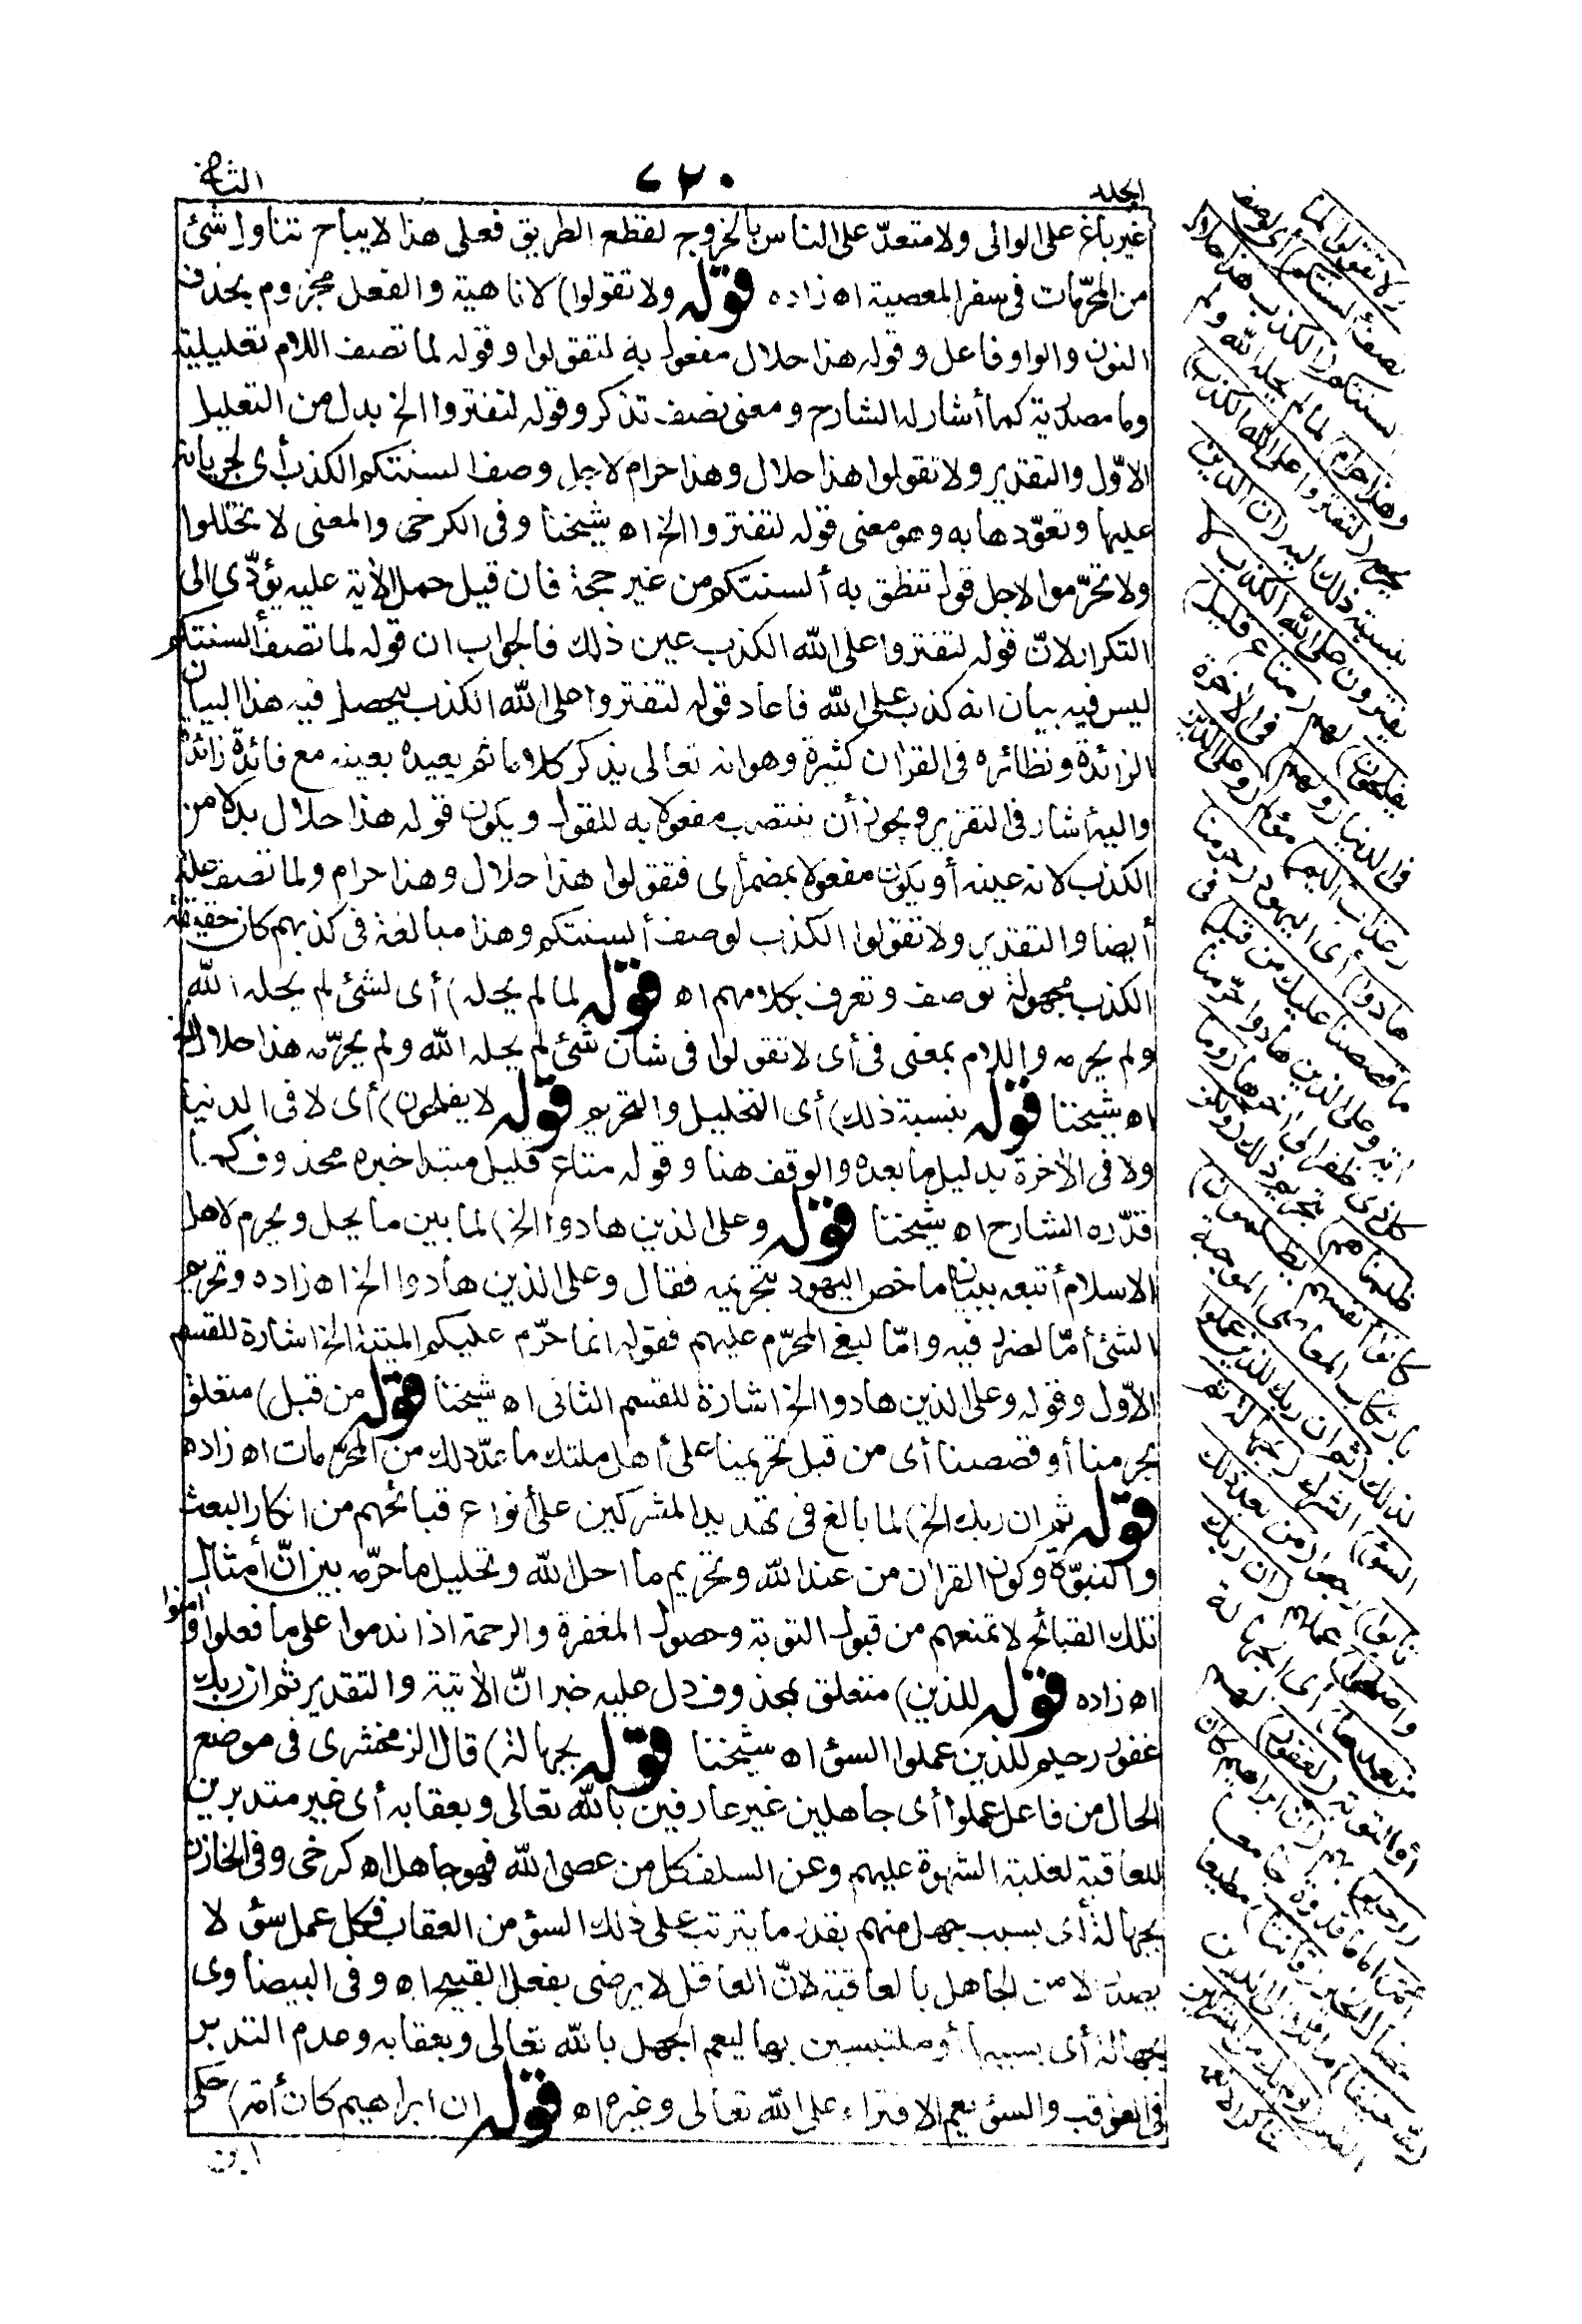 الجلد
٦٢٠
الثاني
غير باغ على الوالى ولا متعدّ على الناس بالخروج لقطع الطريق فعلى هذا لا يباح تناول شئ
من المحرّمات فى سفر المعصية اه زاده قوله ولا تقولوا) لا ناهية والفعل مجزوم بحذف
النون والواو فاعل وقوله هذا حلال مفعول به لتقولوا وقوله لما تصف اللام تعليلية
وما مصدرية كما أشار له الشارح ومعنى تصف تذكر وقوله لتفتروا الخ بدل من التعليل
الاوّل والتقدير ولا تقولوا هذا حلال وهذا حرام لاجل وصف السنتكم الكذب أى لجريانه
عليها وتعوّدها به وهو معنى قوله لتفتروا الخ اه شيخنا وفى الكرخى والمعنى لا تحللوا
ولا تحرّموا لاجل قول تنطق به ألسنتكم من غير حجة فان قيل حمل الأية عليه يؤدّى الى
التكرار لانّ قوله لتفتروا على الله الكذب عين ذلك فالجواب ان قوله لما تصف ألسنتكم
ليس فيه بيان انه كذب على الله فاعاد قوله لتفتروا على الله الكذب ليحصل فيه هذا البيان
الزائدة ونظائره فى القرآن كثيرة وهو انه تعالى يذكر كلاما ثم يعيده بعينه مع فائدة زائدة
واليه أشار فى التقرير ويجوز أن ينتصب مفعولا به للقول ويكون قوله هذا حلال بدلا من
الكذب لانه عينه أو يكون مفعولا بمضمر أى فتقولوا هذا حلال وهذا حرام ولما تصف علة
أيضا والتقدير ولا تقولوا الكذب لوصف ألسنتكم وهذا مبالغة فى كذبهم كان حقيقة
الكذب مجهولة توصف وتعرف بكلامهم اه قوله لما لم يحله) أى لشئ لم يحله الله
ولم يحرمه واللام بمعنى فى أى لا تقولوا فى شان شئ لم يحله الله ولم يحرّمه هذا حلال الخ
اه شيخنا قوله بنسبة ذلك) أى التحليل والتحريم قوله لا يفلحون) أى لا فى الدنيا
ولا فى الأخرة بدليل ما بعده والوقف هنا وقوله متاع قليل مبتدا خبره محذوف كما
قدّره الشارح اه شيخنا قوله وعلى الذين هادوا الخ) لما بين ما يحل ويحرم لاهل
الاسلام أتبعه ببيان ما خص اليهود بتحريمه فقال وعلى الذين هادوا الخ اه زاده وتحريم
الشئ أمّا لضرر فيه وامّا لبغى المحرّم عليهم فقوله انما حرّم عليكم الميتة الخ اشارة للقسم
الأوّل وقوله وعلى الذين هادوا الخ اشارة للقسم الثانى اه شيخنا قوله من قبل) متعلق
بحرمنا أو قصصنا أى من قبل تحريمنا على أهل ملتك ما عدّد لك من المحرّمات اه زاده
قوله ثم ان ربك الخ) لما بالغ فى تهديد المشركين على أنواع قبائحهم من انكار البعث
والنبوّة وكون القران من عند الله وتحريم ما احل الله وتحليل ما حرّمه بين انّ أمثال
تلك القبائح لا تمنعهم من قبول التوبة وحصول المغفرة والرحمة اذا ندموا على ما فعلوا وآمنوا
اه زاده قوله للذين) متعلق بمحذوف دل عليه خبر انّ الأتية والتقدير ثم ان ربك
غفور رحيم للذين عملوا السؤ اه شيخنا قوله بجهالة) قال الزمخشرى فى موضع
الحال من فاعل عملوا أى جاهلين غير عارفين بالله تعالى وبعقابه أى غير متدبرين
للعاقبة لغلبة الشهوة عليهم وعن السلف كل من عصى الله فهو جاهل اه كرخى وفى الخازن
بجهالة أى بسبب جهل منهم بقدر ما يترتب على ذلك السؤ من العقاب فكل عمل سؤ لا
يصدر الا من الجاهل بالعاقبة لانّ العاقل لا يرضى بفعل القبيح اه وفى البيضاوى
بجهالة أى بسببها أو ملتبسين بها ليعم الجهل بالله تعالى وبعقابه وعدم التدبر
فى العواقب والسؤ يعم الافتراء على الله تعالى وغيره اه قوله ان ابراهيم كان أمّة) حكى
ولا تقولوا لما
تصف ألسنتكم) أى لوصف
ألسنتكم (الكذب هذا حلال
وهذا حرام) لما لم يحله الله ولم
يحرمه (لتفتروا على الله الكذب)
بنسبة ذلك اليه (ان الذين
يفترون على الله الكذب لا
يفلحون) لهم (متاع قليل)
فى الدنيا (ولهم) فى الآخرة
(عذاب أليم) مؤلم (وعلى الذين
هادوا) أى اليهود (حرمنا
ما قصصنا عليك من قبل) فى
اية وعلى الذين هادوا حرّمنا
كل ذى ظفر الى اخرها (وما
ظلمناهم) بتحريم ذلك (ولكن
كانوا أنفسهم يظلمون)
بارتكاب المعاصى الموجبة
لذلك (ثم ان ربك للذين عملوا
السؤ) الشرك (بجهالة ثم
تابوا) رجعوا (من بعد ذلك
وأصلحوا) عملهم (ان ربك
من بعدها) أى الجهالة
أو التوبة (لغفور) لهم
(رحيم) بهم (ان ابراهيم كان
أمّة) اماما قدوة جامعا
لخصال الخير (قانتا) مطيعا